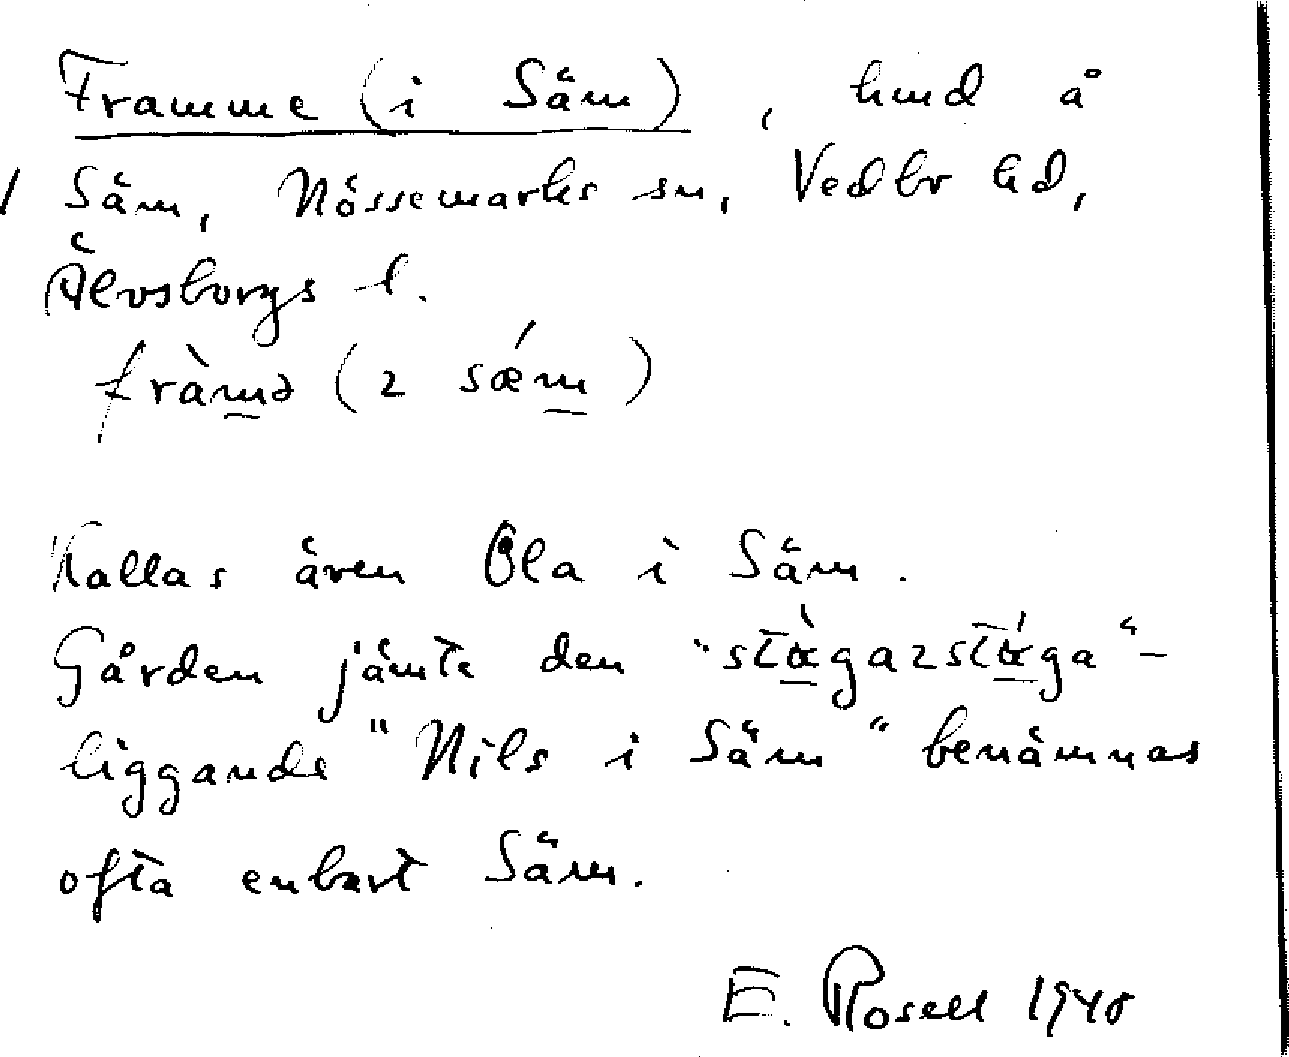 Framme (i Säm), hmd å
/ Säm, Nössemarks sn, Vedbo hd,
Älvsborgs l.
fràmə (ɪ sǽm)
Kallas även Ola i Säm.
Gården jämte den "
liggande "Nils i Säm" benämnas
ofta enbart Säm.
E. Rosell 1940